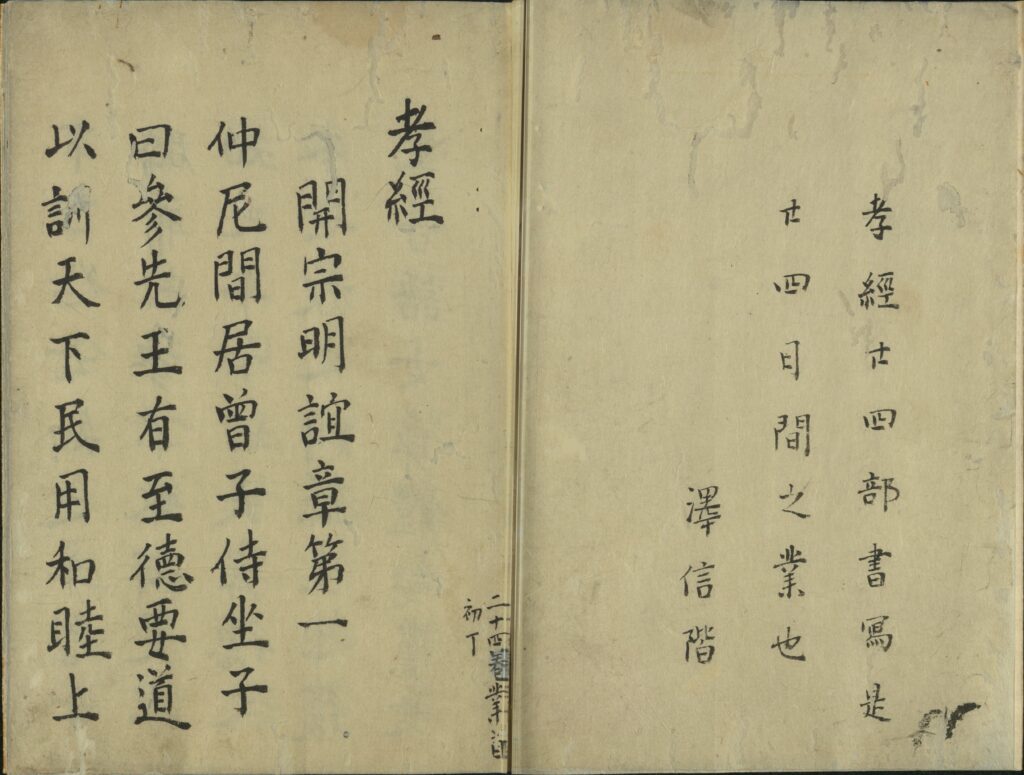 孝經廿四部書寫是
廿四日間之業也
澤信階
孝經
開宗明誼章第一
仲尼間居曾子侍坐子
曰參先王有至德要道
以訓天下民用和睦上
二十四卷業
初丁